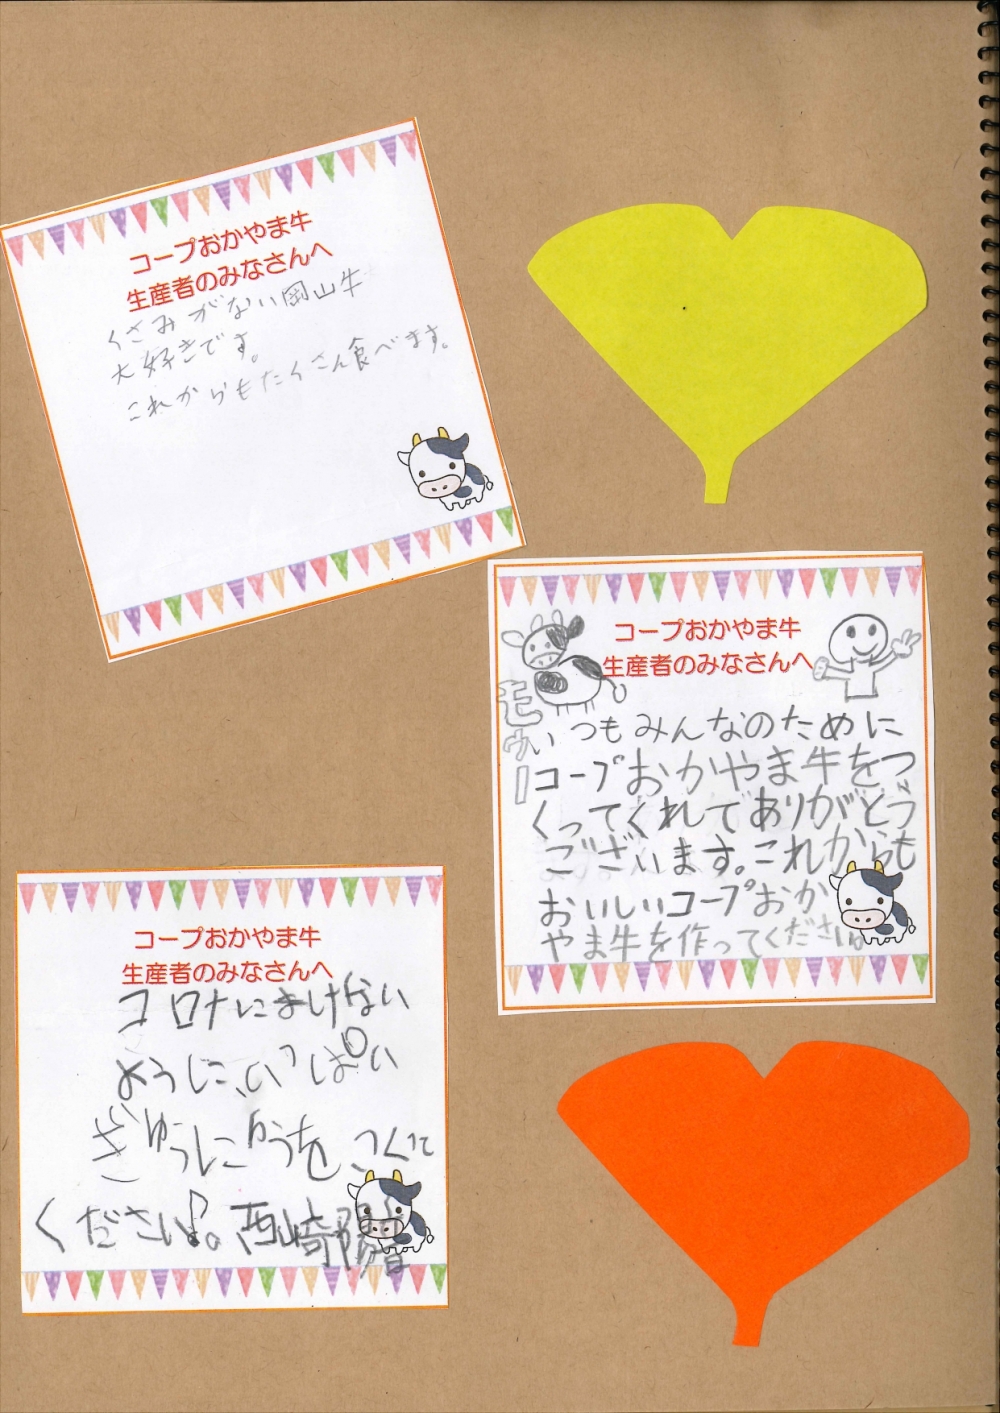 コープおかやま牛
生産者のみなさんへ
くさみがない岡山牛
大好きです。
これからもたくさん食べます。
コープおかやま牛
生産者のみなさんへ
モゥー
いつもみんなのために
コープおかやま牛をつ
くってくれてありがとう
ございます。これからも
おいしいコープおか
やま牛を作ってください。
コープおかやま牛
生産者のみなさんへ
コロナにまけない
ように、いっぱい
ぎゅうにゅうを つくて
ください♪。西崎陽